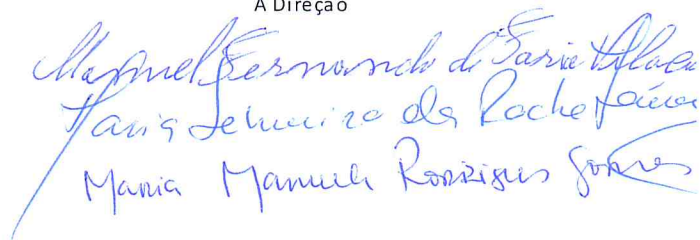 A Direção
Manuel Fernando de Faria
Maria da Rocha
Maria Manuela Rodrigues Gomes